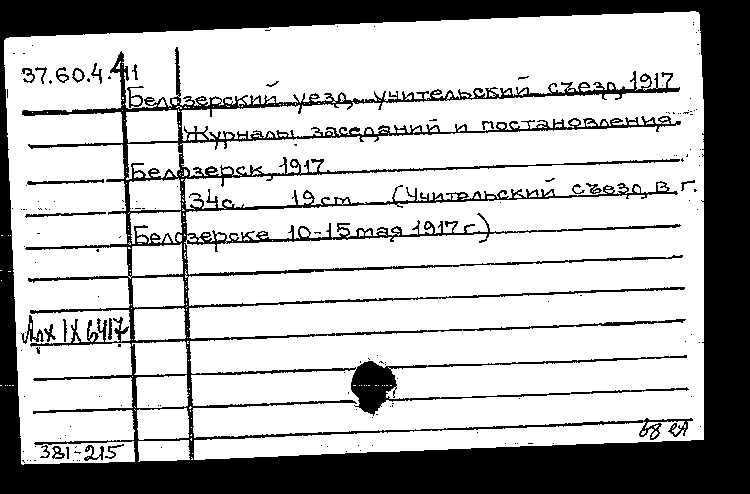 37.60.4.411
Белозерский уезд. учительский съезд, 1917
Журналы заседаний и постановления.
Белозерск, 1917.
34с. 19 cm (Учительский съезд в г.
Белозерске 10-15 мая 1917 г.)
Арх IX 6417
381-215